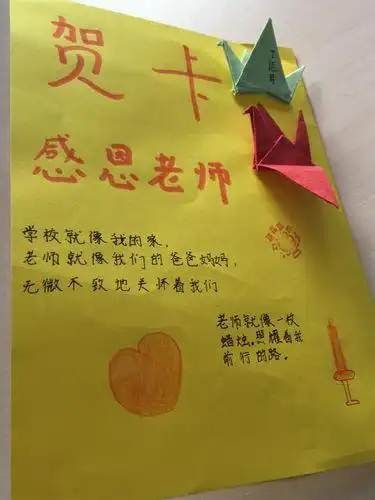 贺卡
感恩老师
学校就像我的家,
老师就像我们的爸爸妈妈,
无微不致地关怀着我们
老师就像一枚
蜡烛,照耀着我
前行的路。